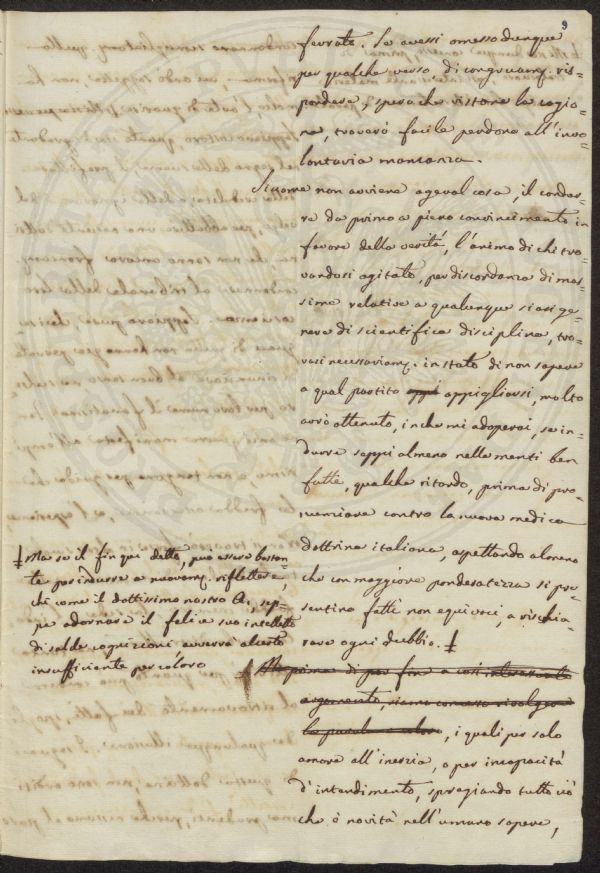 9
ferrato. Se avessi omesso dunque
per qualche verso di congruam. ris-
pondere, spero che vistone la cagio-
ne, troverò facile perdono all'invo-
lontaria mancanza.
Siccome non avviene ageval cosa, il condur-
re da primo a pieno convincimento in
favore della verità, l'animo di chi tro-
vandosi agitato, per discordanza di mas-
sime relative a qualunque siasi ge-
nere di scientifica disciplina, tro-
vasi necessariam. in stato di non sapere
a qual partito appigliarsi, molto
avrò ottenuto, in che mi adoperai, se in-
durre seppi almeno nelle menti ben
fatte, qualche ritardo, prima di pro-
nunciare contro la nuova medica
dottrina italiana, aspettando almeno
che con maggiore ponderatezza si pre-
sentino fatti non equivoci, a rischia-
rare ogni dubbio.
Ma se il fin qui detto, può essere bastan-
te per indurre a nuovam. riflettere,
chi come il dottissimo nostro A., sep-
pe adornare il felice suo intelletto
di salde cognizioni, avverrà al certo
insufficiente per coloro
Ma prima di por fine a così interessante
argomento, siami concesso rivolgere
la parola a coloro, i quali per solo
amore all'inerzia, o per incapacità
d'intendimento, spregiando tutto ciò
che è novità nell'umano sapere,